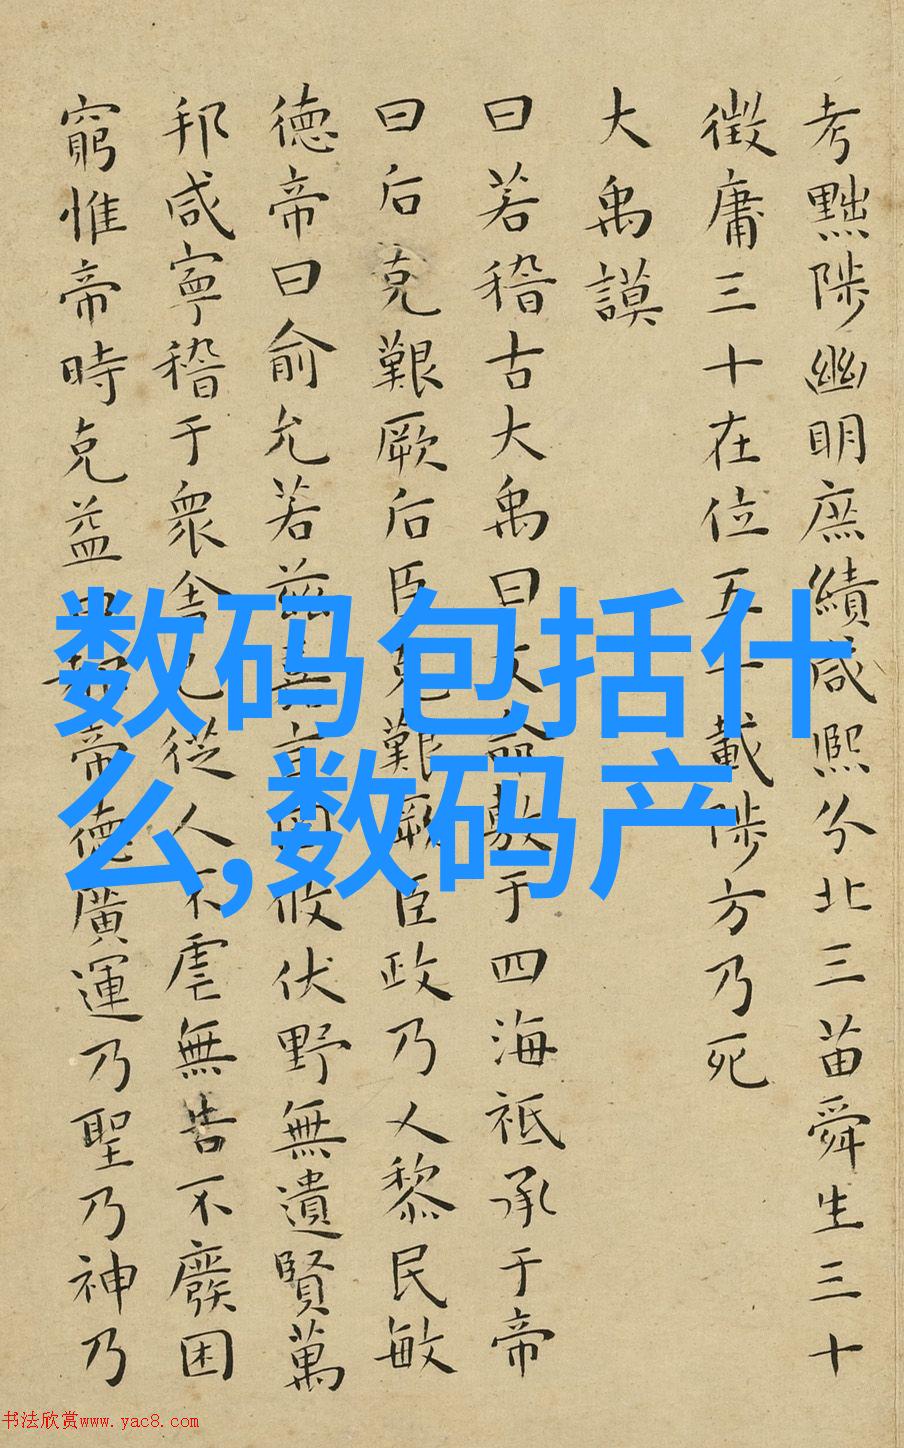 考黜陟幽明庶績咸熙分北三苗舜生三十
徵庸三十在位五十載陟方乃死
大禹謨
曰若稽古大禹曰文命敷于四海祗承于帝
曰后克艱厥后臣克艱厥臣政乃乂黎民敏
德帝曰俞允若茲嘉言罔攸伏野無遺賢萬
邦咸寧稽于衆舍己從人不虐無告不廢困
窮惟帝時克益曰都帝德廣運乃聖乃神乃
数码包括什
么,数码产
书法欣赏www.yac8.com